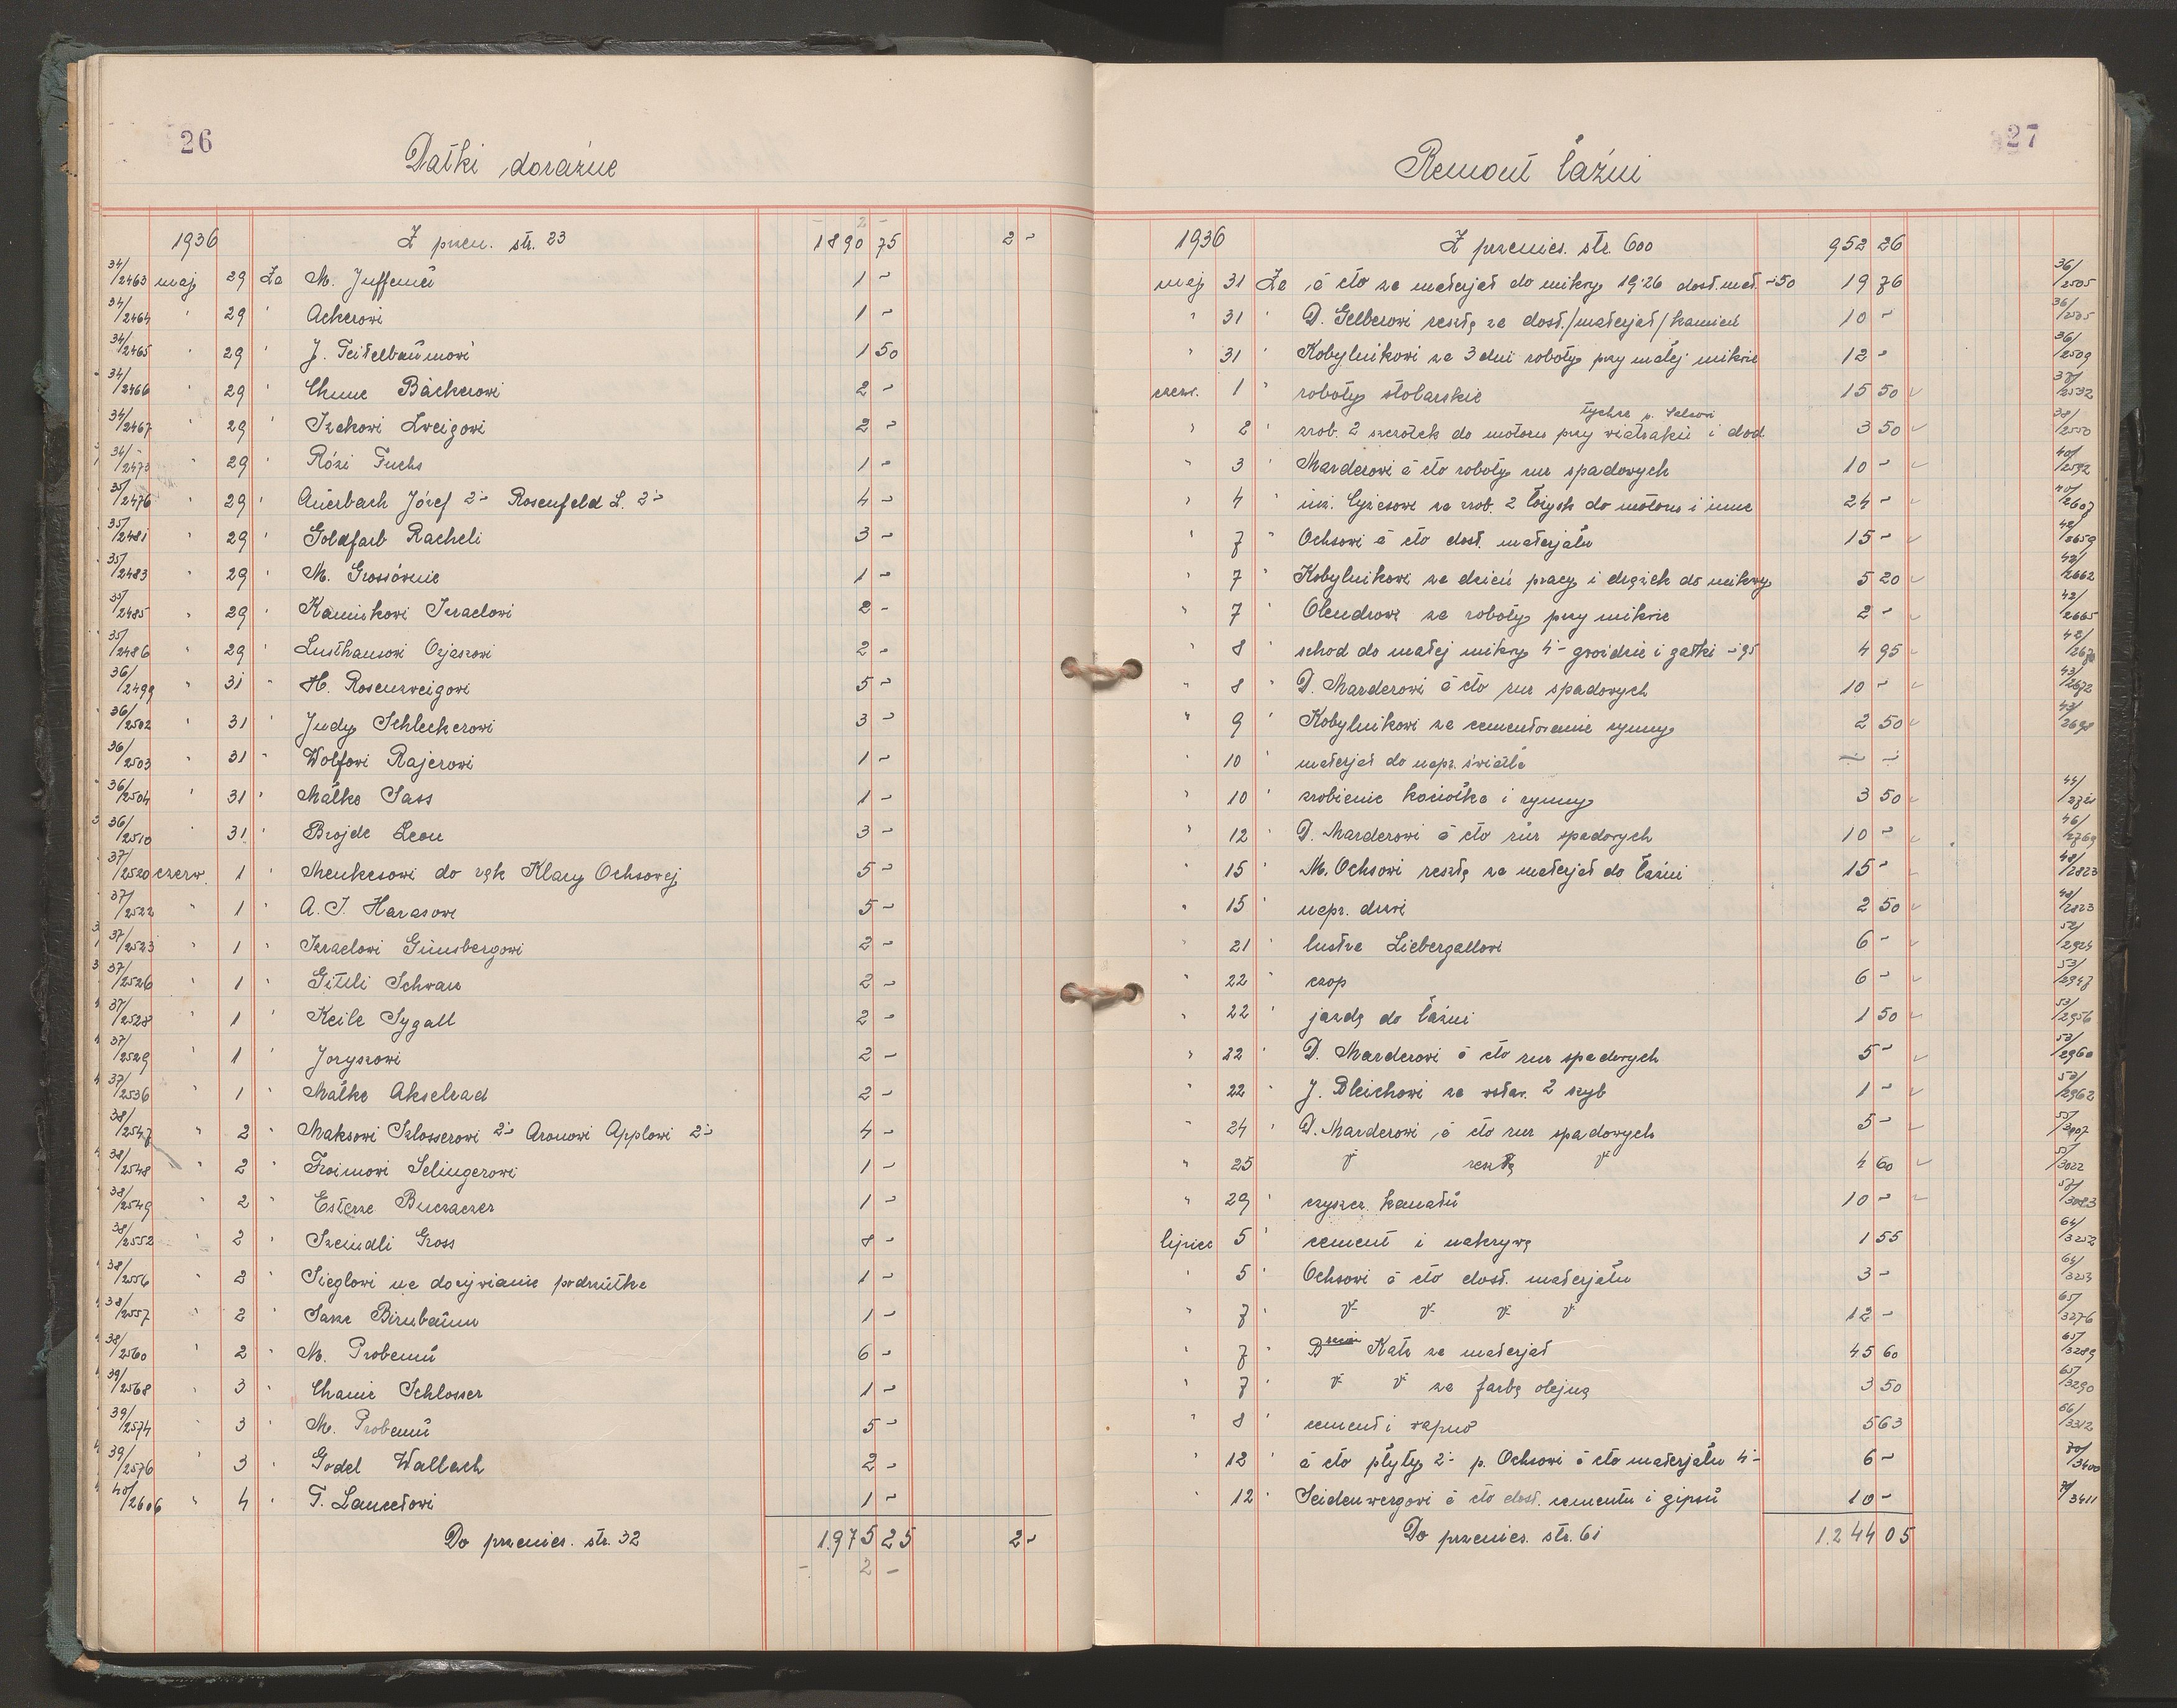 26
Datki doraźne
1936 Z przen. str. 23 1890 75 2 -
34/2463 maj 29 Za M. Juffemu 1 -
34/2464 " 29 " Ackerowi 1 -
34/2465 " 29 " J. Teitelbaumowi 1 50
34/2466 " 29 " Chune Bäckerowi 2 -
34/2467 " 29 " Izakowi Zweigowi 2 -
34/2473 " 29 " Rózi Fuchs 1 -
35/2476 " 29 " Auerbach Józef 2- Rosenfeld L. 2- 4 -
35/2481 " 29 " Goldfarb Racheli 3 -
35/2483 " 29 " M. Grossównie 1 -
35/2485 " 29 " Kamiskowi Izraelowi 2 -
35/2486 " 29 " Lusthausowi Ozjaszowi 2 -
36/2499 " 31 " H. Rosenzweigowi 5 -
36/2502 " 31 " Judy Schleckerowi 3 -
36/2503 " 31 " Wolfowi Rajerowi 1 -
36/2504 " 31 " Małke Sass 1 -
36/2510 " 31 " Brojde Leon 3 -
37/2520 czerw. 1 " Menkesowi do rąk Klary Ochsowej 5 -
37/2522 " 1 " A. J. Harasowi 5 -
37/2523 " 1 " Izraelowi Günsbergowi 2 -
37/2526 " 1 " Gittli Schwan 2 -
37/2528 " 1 " Keile Sygall 2 -
37/2529 " 1 " Joryszowi 2 -
37/2536 " 1 " Małke Akselrad 2 -
38/2547 " 2 " Maksowi Szlosserowi 2- Aronowi Applowi 2- 4 -
38/2548 " 2 " Froimowi Selingerowi 1 -
38/2549 " 2 " Esterze Buczaczer 1 -
38/2552 " 2 " Szeindli Gross 8 -
38/2556 " 2 " Sieglowi na dożywianie podrzutka 1 -
38/2557 " 2 " Sasze Birnbaum 1 -
38/2560 " 2 " M. Probemu 6 -
39/2568 " 3 " Chanie Schlosser 1 -
39/2574 " 3 " M. Probemu 5 -
39/2576 " 3 " Godel Wallach 2 -
40/2606 " 4 " T. Lancetowi 1 -
Do przenies. str. 32 1.975 25 2 -
- 2 -
27
Remont łaźni
1936 Z przenies. str. 600 952 26
maj 31 Za á cto za materjał do mikwy 19·26 dost. mat. -·50 19 76 36/2505
" 31 " D. Gelberowi resztę za dost./materjał/kamień 10 - 36/2505
" 31 " Kobylnikowi za 3 dni roboty przy małej mikwie 12 - 36/2509
czerw. 1 " roboty stolarskie 15 50 37/2532
tychże p.
" 2 " zrob. 2 szczotek do motoru przy wiatraku i dod 3 50 38/2550
" 3 " Marderowi á cto roboty rur spadowych 10 - 40/2592
" 4 " inż. za zrob. 2 łożysk do motoru i inne 24 - 40/2607
" 7 " Ochsowi á cto dost. materjału 15 - 42/2659
" 7 " Kobylnikowi za dzień pracy i drążek do mikwy 5 20 42/2662
" 7 " Olendrowi za roboty przy mikwie 2 - 42/2665
" 8 " schod do małej mikwy 4- gwoździe i gałki -·95 4 95 42/2670
" 8 " D. Marderowi á cto rur spadowych 10 - 43/2672
" 9 " Kobylnikowi za cementowanie rynny 2 50 43/2698
" 10 " materjał do napr. światła - -
" 10 " zrobienie kociołka i rynny 3 50
" 12 " D. Marderowi á cto rur spadowych 10 - 46/2769
" 15 " M. Ochsowi resztę za materjał do łaźni 15 - 48/2823
" 15 " napr. drzwi 2 50 48/2823
" 21 " lustra Liebergallowi 6 - 52/2924
" 22 " czop 6 - 53/2947
" 22 " jazdę do łaźni 1 50 53/2956
" 22 " D. Marderowi á cto rur spadowych 5 - 53/2960
" 22 " J. Bleichowi za wstaw. 2 szyb 1 - 53/2962
" 24 " D. Marderowi á cto rur spadowych 5 - 55/3007
" 25 " resztę " 4 60 55/3022
" 29 " czyszcz. kanału 10 - 57/3083
lipiec 5 " cement i nakrywę 1 55 64/3252
" 5 " Ochsowi á cto dost. materjału 3 - 64/3253
" 7 " " " " " 12 - 65/3276
" 7 " Bracia Katz za materjał 45 60 65/3289
" 7 " " " za farbę olejną 3 50 65/3290
" 8 " cement i wapno 5 63 66/3312
" 12 " á cto płyty 2- p. Ochsowi á cto materjału 4- 6 - 70/3400
" 12 " Seidenwergowi á cto dost. cementu i gipsu 10 - 70/3411
Do przenies. str. 61 1.244 05